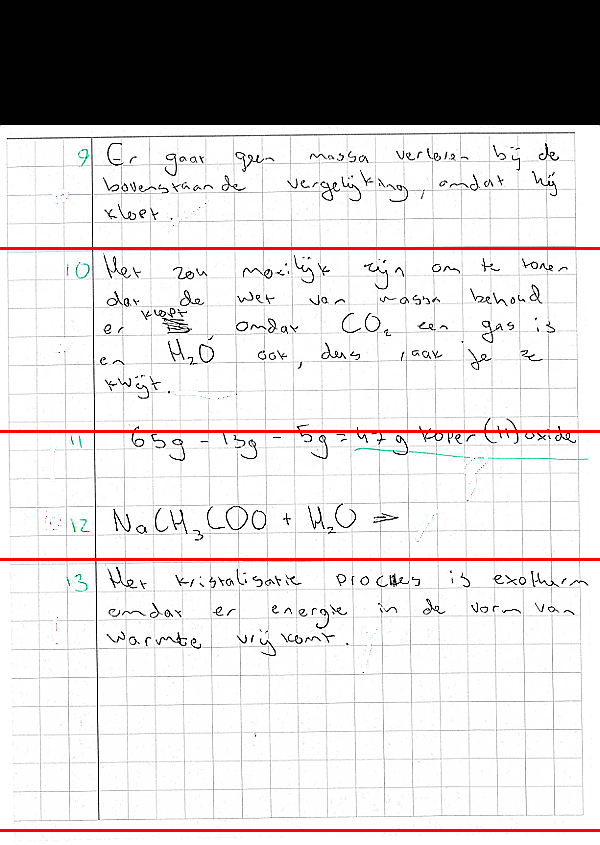 9 Er gaat geen massa verloren bij de
bovenstaande vergelijking, omdat hij
klopt.
10 Het zou moeilijk zijn om te tonen
dat de wet van massa behoud
er klopt omdat CO₂ een gas is
en H₂O ook, dus raak je ze
kwijt.
11 65g - 13g - 5g = 47g koper(II)oxide
12 NaCH₃COO + H₂O ⇒
13 Het kristalisatie proces is exotherm
omdat er energie in de vorm van
warmte vrij komt.